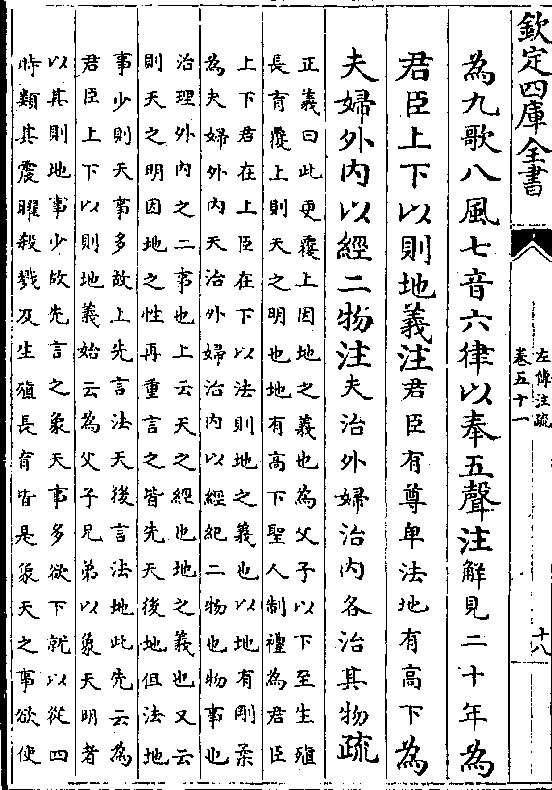 欽定四庫全書
左傳注疏
卷五十一
十八
為九歌八風七音六律以奉五聲注解見二十年為
君臣上下以則地義注君臣有尊卑法地有高下為
夫婦外内以經二物注夫治外婦治内各治其物疏
正義曰此更覆上因地之義也為父子以下至生殖
長育覆上則天之明也地有高下聖人制禮為君臣
上下君在上臣在下以法則地之義也以地有剛柔
為夫婦外内天治外婦治内以經紀二物也物事也
治理外内之二事也上云天之經也地之義也又云
則天之明因地之性再重言之皆先天後地但法地
事少則天事多故上先言法天後言法地此先云為
君臣上下以則地義始云為父子兄弟以象天明者
以其則地事少故先言之象天事多欲下就以從四
時類其震曜殺戮及生殖長育皆是象天之事欲使